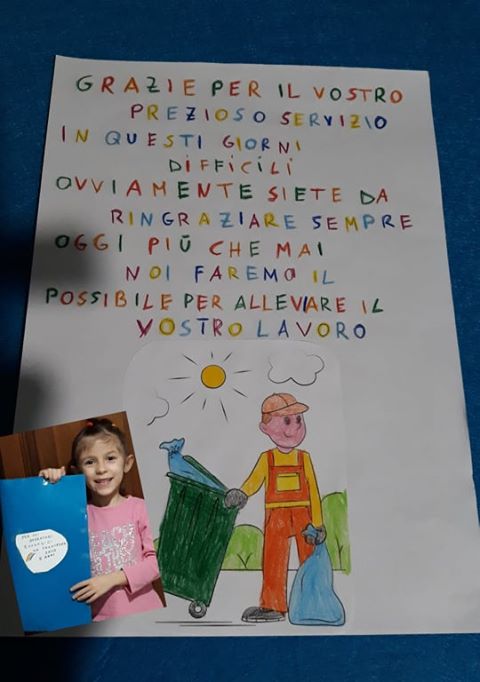 GRAZIE PER IL VOSTRO
PREZIOSO SERVIZIO
IN QUESTI GIORNI
DIFFICILI
OVVIAMENTE SIETE DA
RINGRAZIARE SEMPRE
OGGI PIÙ CHE MAI
NOI FAREMO IL
POSSIBILE PER ALLEVIARE IL
VOSTRO LAVORO
PER GLI
OPERATORI
ECOLOGICI